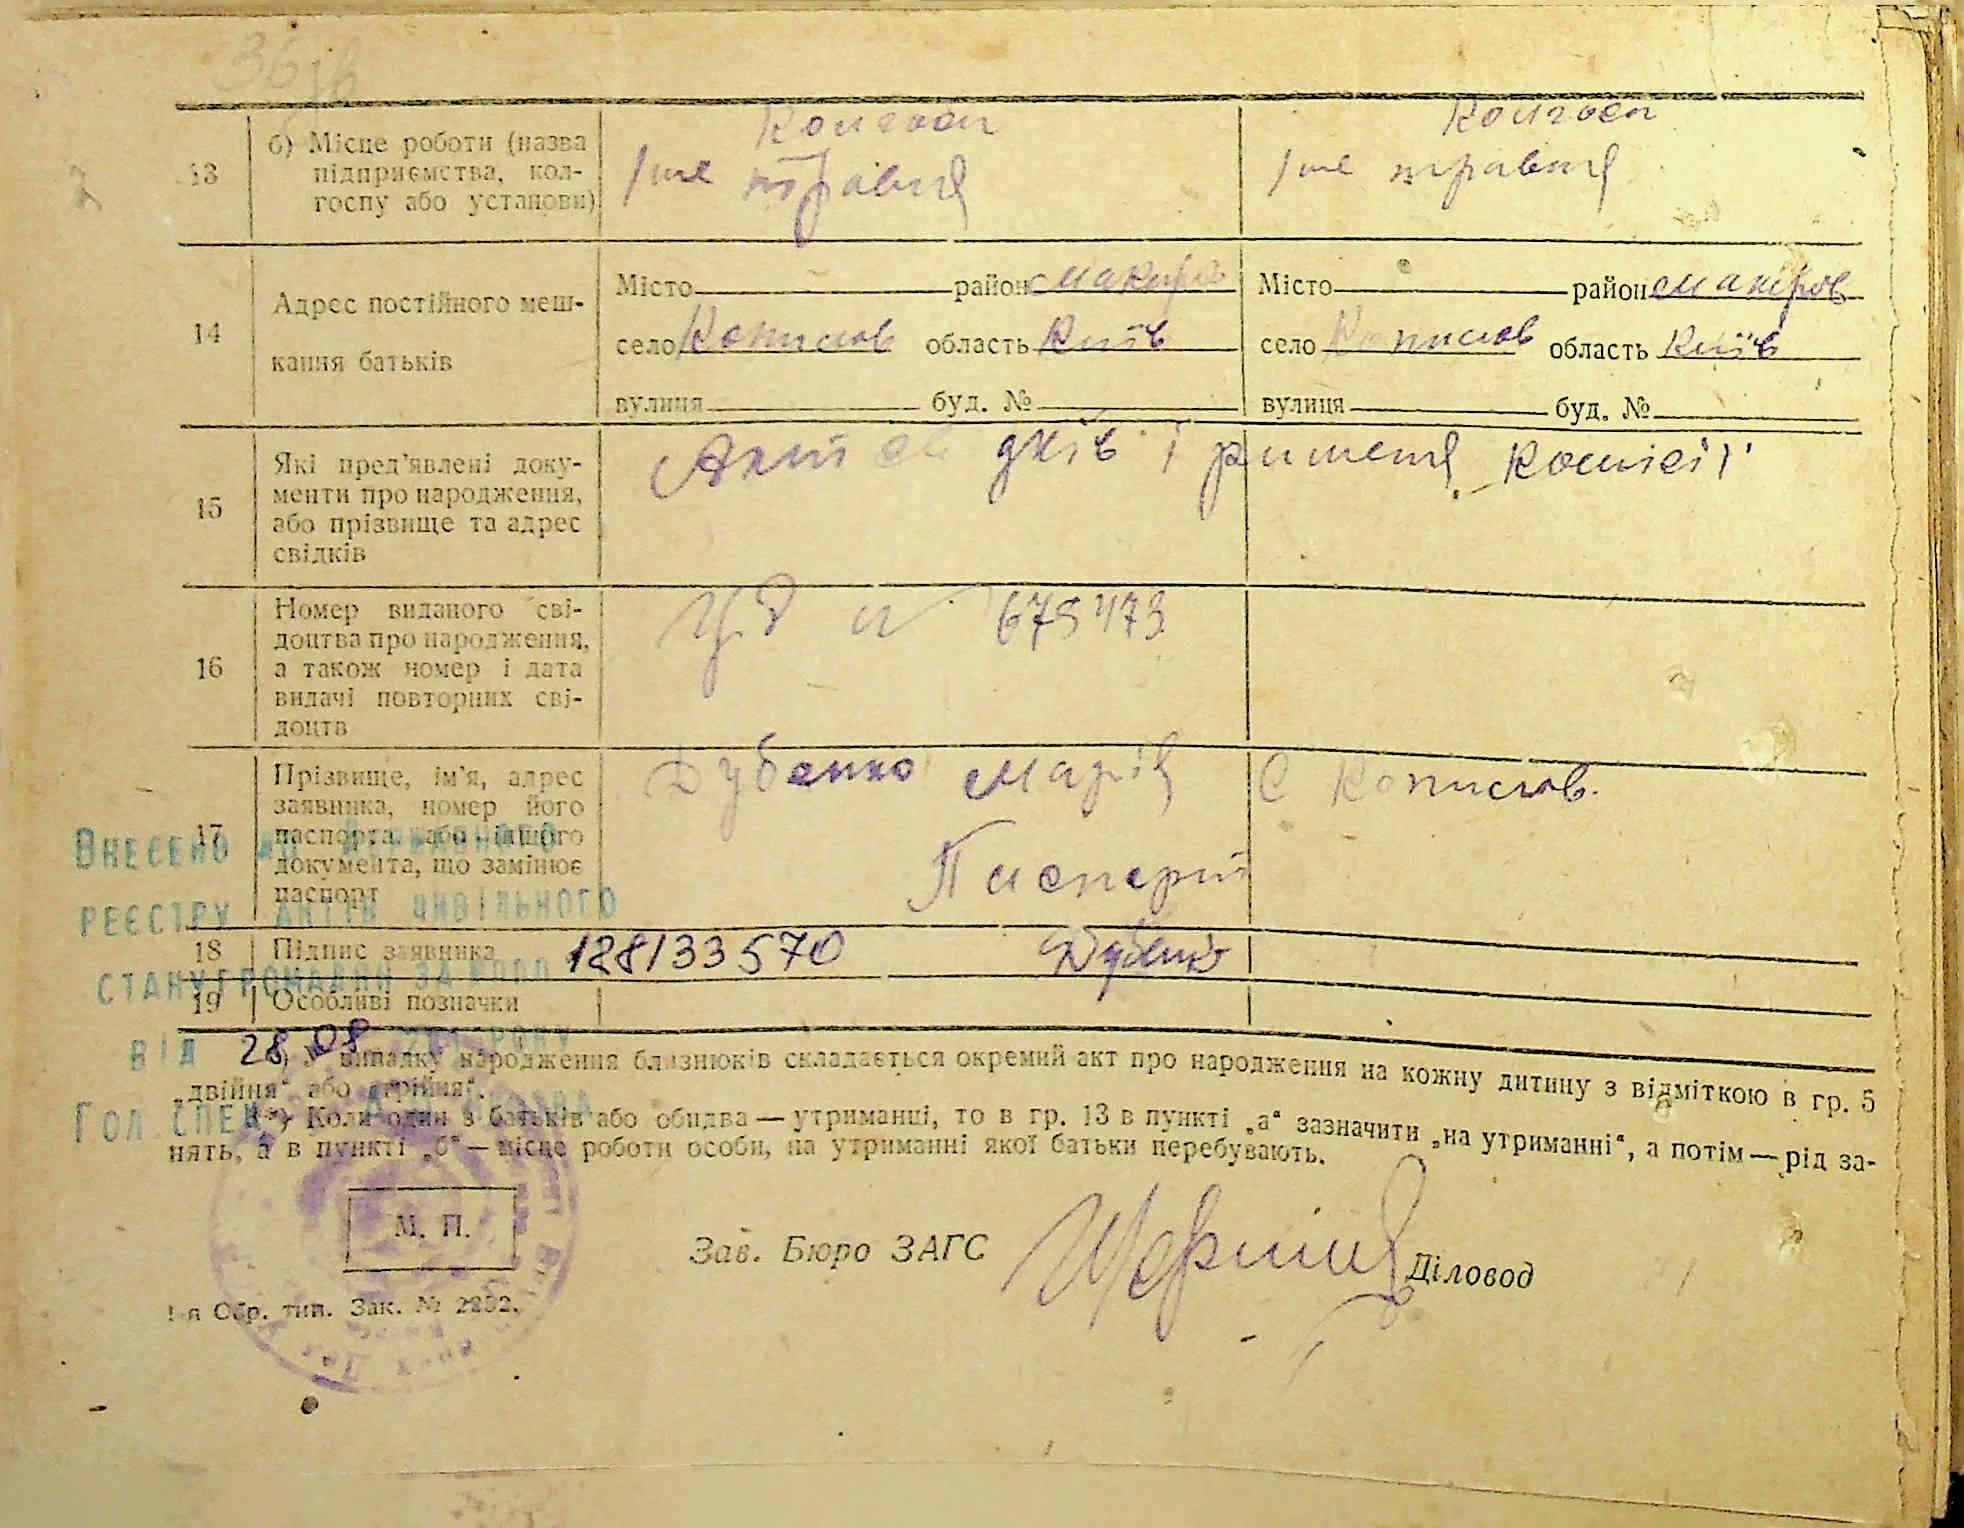 13
б) Місце роботи (назва
підприємства, кол-
госпу або установи)
Колгосп
1ше травня
Колгосп
1ше травня
14
Адрес постійного меш-
кання батьків
Місто район Макарів
село Копилов область Київ
вулиця буд. №
Місто район Макаров
село Копилов область Київ
вулиця буд. №
15
Які пред'явлені доку-
менти про народження,
або прізвище та адрес
свідків
Акт св дків і ришеня комісії
16
Номер виданого сві-
доцтва про народження,
а також номер і дата
видачі повторних сві-
доцтв
675473
17
Прізвище, ім'я, адрес
заявника, номер його
паспорта або іншого
документа, що замінює
паспорт
Дубенко Марія С Копилов.
18
Підпис заявника
128133570
Дубенко
19
Особливі позначки
Внесено до Державного
реєстру актів цивільного
стану громадян за №
від 28 08 року
Гол. спец
*) У випадку народження близнюків складається окремий акт про народження на кожну дитину з відміткою в гр. 5
„двійня“ або „трійня“.
**) Коли один з батьків або обидва — утриманці, то в гр. 13 в пункті „а“ зазначити „на утриманні“, а потім — рід за-
нять, а в пункті „б“ — місце роботи особи, на утриманні якої батьки перебувають.
М. П.
Зав. Бюро ЗАГС
Діловод
1-я Обр. тип. Зак. № 2292.